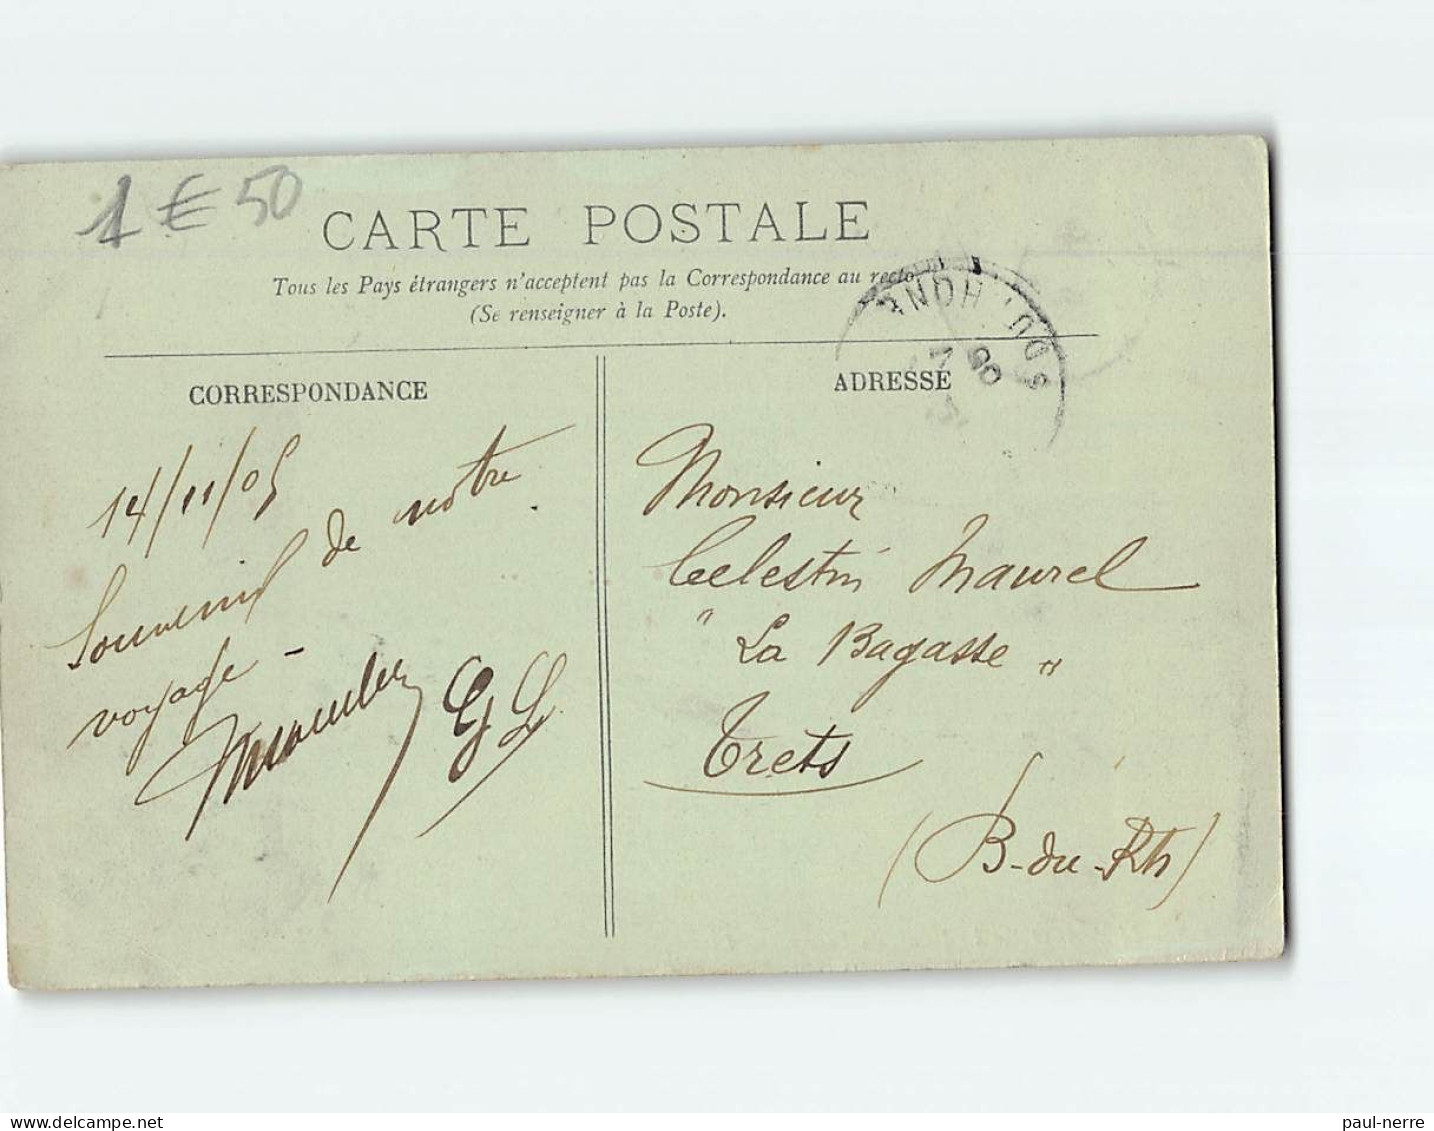 1 € 50
CARTE POSTALE
Tous les Pays étrangers n'acceptent pas la Correspondance au recto
(Se renseigner à la Poste).
CORRESPONDANCE
14/11/05
Souvenir de notre
voyage -
ADRESSE
Monsieur
Celestin Maurel
" La Bagasse "
Trets
(B-du-Rh)
delcampe.net
paul-nerre